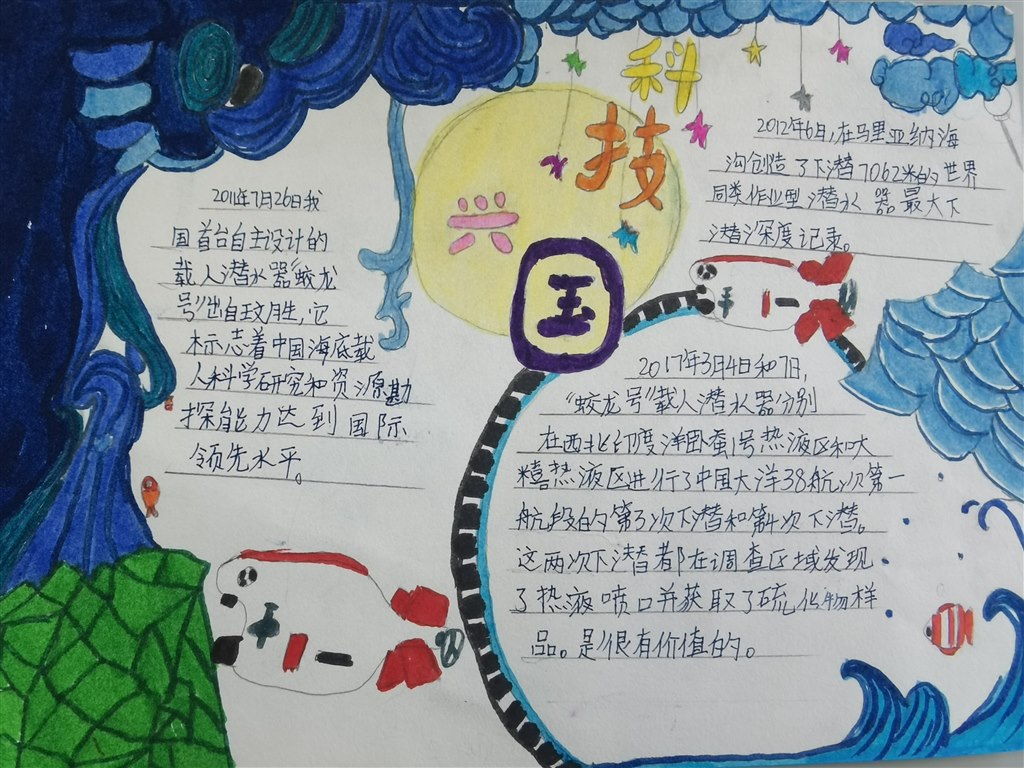 科技兴国
2011年7月26日我
国首台自主设计的
载人潜水器“蛟龙
号”出自玟胜，它
标志着中国海底载
人科学研究和资源勘
探能力达到国际
领先水平。
2012年6月，在马里亚纳海
沟创造了下潜7062米的世界
同类作业型潜水器最大下
潜深度记录。
2017年3月4日和7日，
“蛟龙号”载人潜水器分别
在西北印度洋卧蚕1号热液区和大
糦热液区进行了中国大洋38航次第一
航段的第3次下潜和第4次下潜。
这两次下潜都在调查区域发现
了热液喷口并获取了硫化物样
品。是很有价值的。